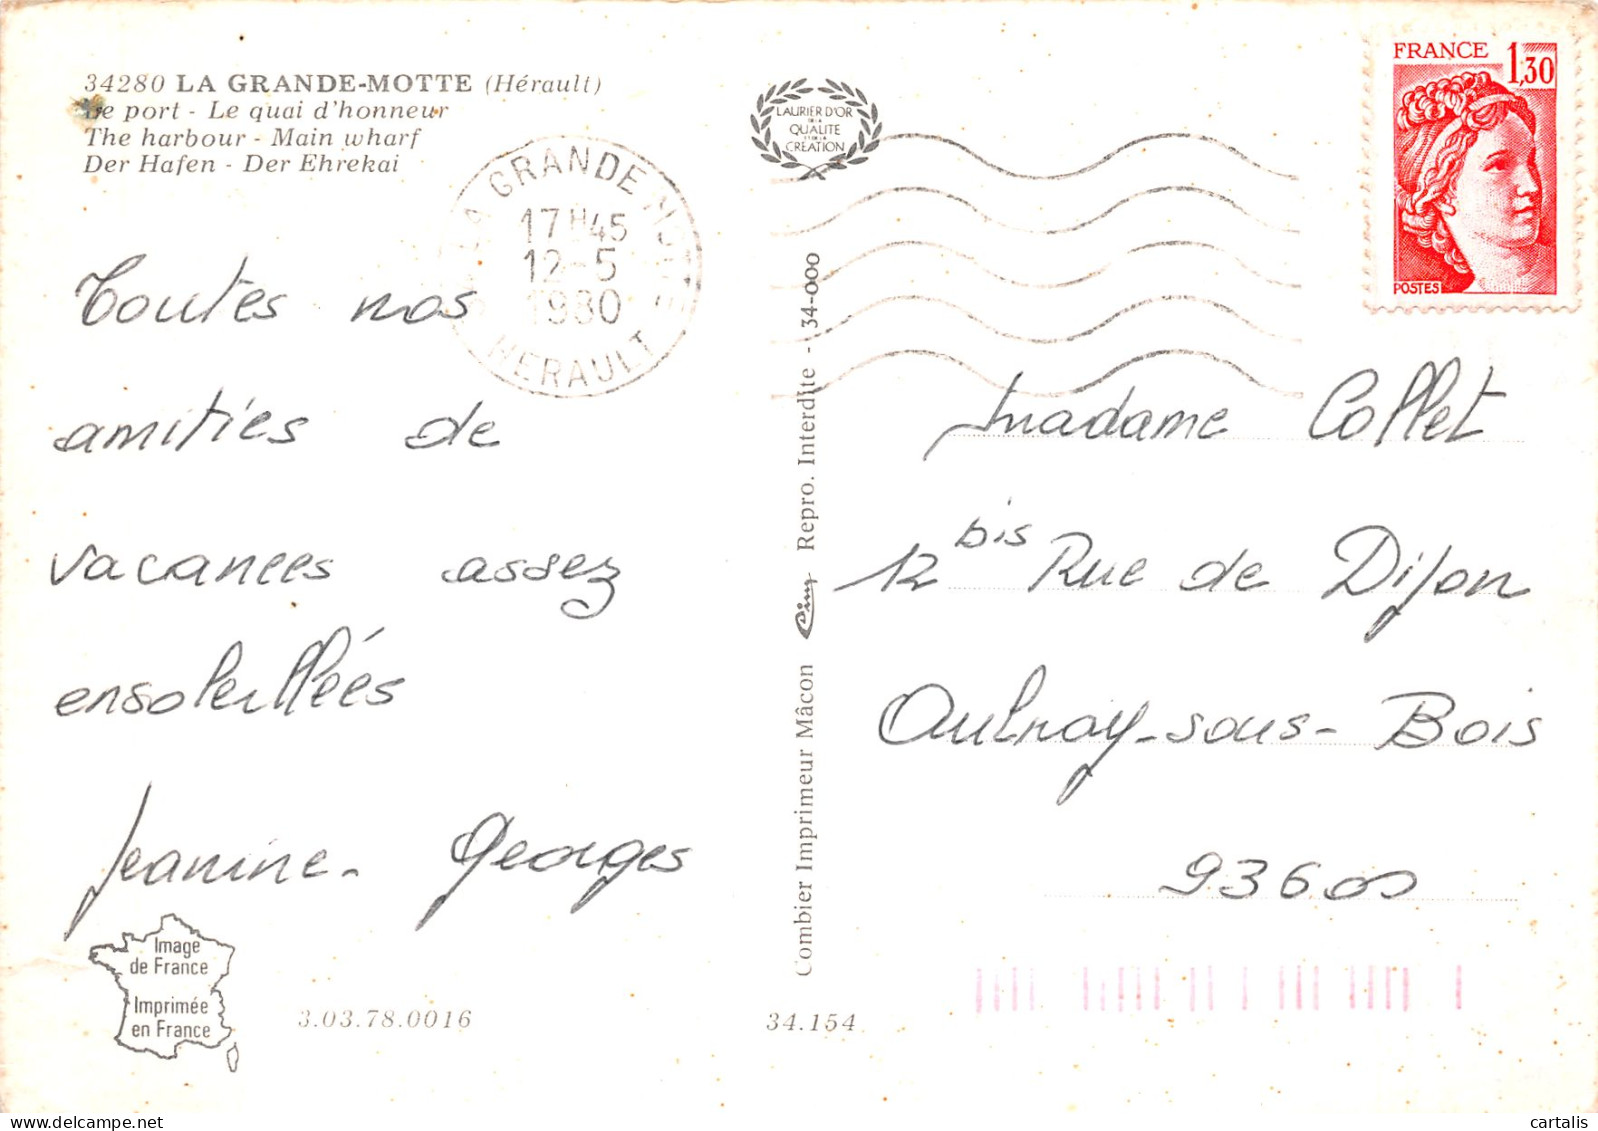 34280 LA GRANDE-MOTTE (Hérault)
Le port - Le quai d'honneur
The harbour - Main wharf
Der Hafen - Der Ehrekai
LAURIER D'OR
DE LA
QUALITE
ET DE LA
CREATION
FRANCE 1,30
POSTES
LA GRANDE MOTTE
17H45
12-5
1980
HERAULT
Toutes nos
amitiés de
vacances assez
ensoleillées
Jeanine - Georges
Madame Collet
12 bis Rue de Dijon
Aulnay-sous-Bois
93600
Combier Imprimeur Mâcon Cim Repro. Interdite - 34-000
Image
de France
Imprimée
en France
3.03.78.0016
34.154
cartalis
www.delcampe.net